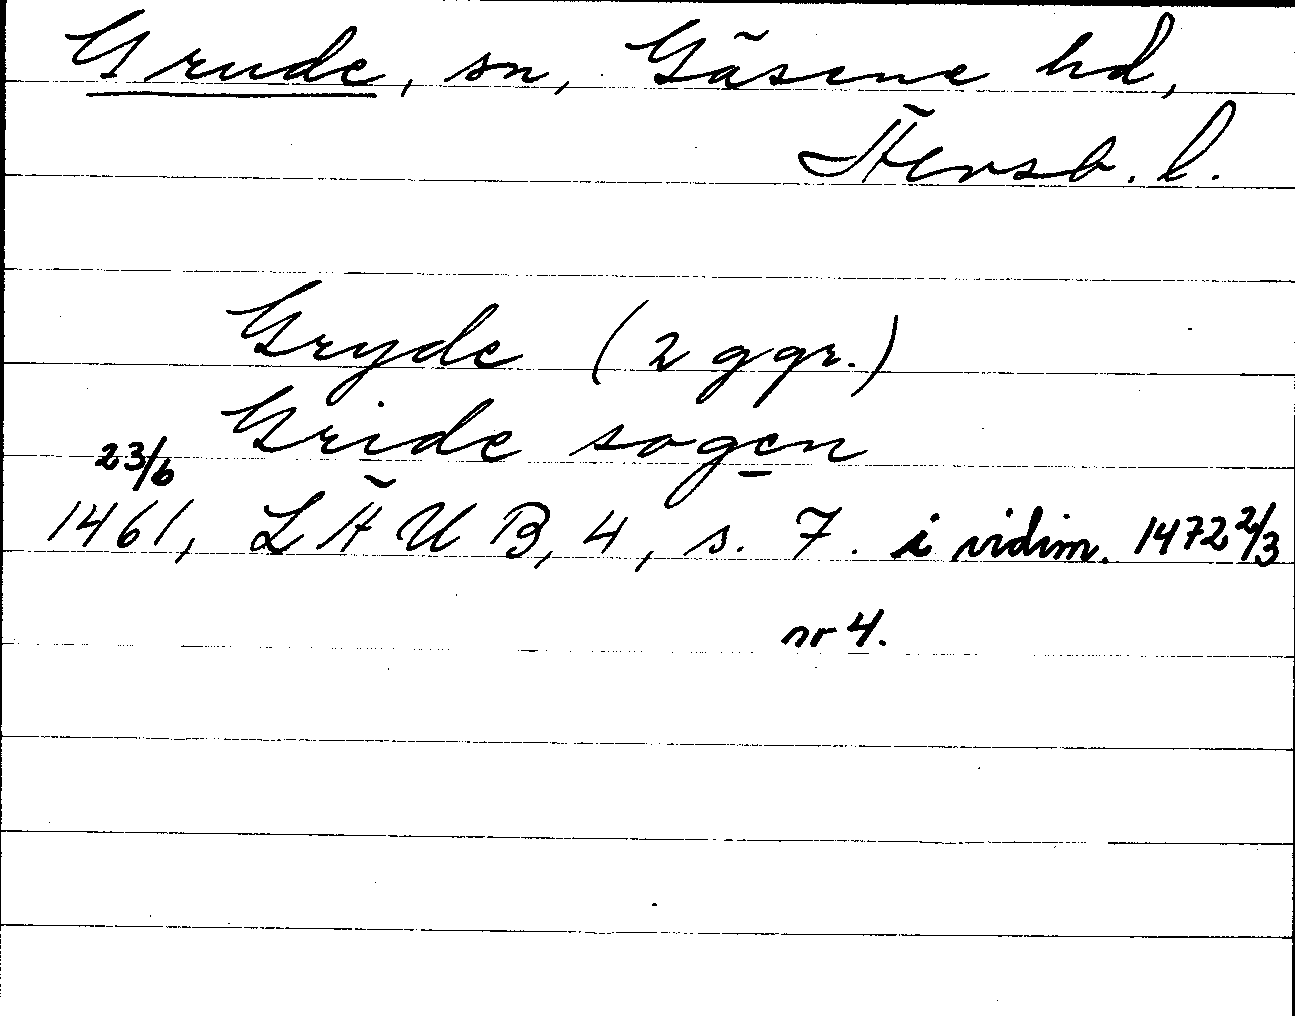 Grude, sn, Gäsene hd,
Älvsb. l.
Gryde (2 ggr.)
Gride sogen
23/6
1461, LÄUB, 4, s. 7. i vidim. 1472 2/3
nr 4.